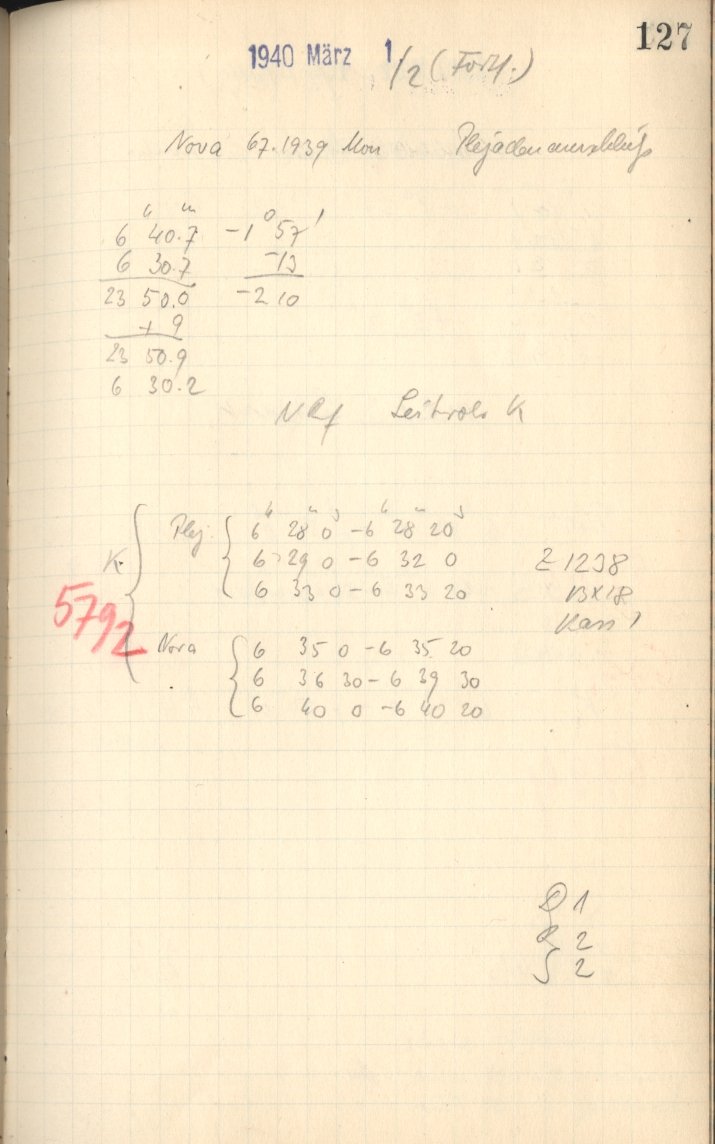 127
1940 März 1/2 (Forts.)
Nova 67.1939 Mon Plejadenanschluß
h m
6 40.7 -1° 57'
6 30.7 -13
23 50.0 -2 10
+ 9
23 50.9
6 30.2
Leitrohr K
h m s h m s
Plej. { 6 28 0 - 6 28 20
K. { 6 29 0 - 6 32 0 Z 1238
6 33 0 - 6 33 20 13X18
5792 Kass 1
Nova { 6 35 0 - 6 35 20
6 36 30 - 6 39 30
6 40 0 - 6 40 20
D 1
R 2
S 2